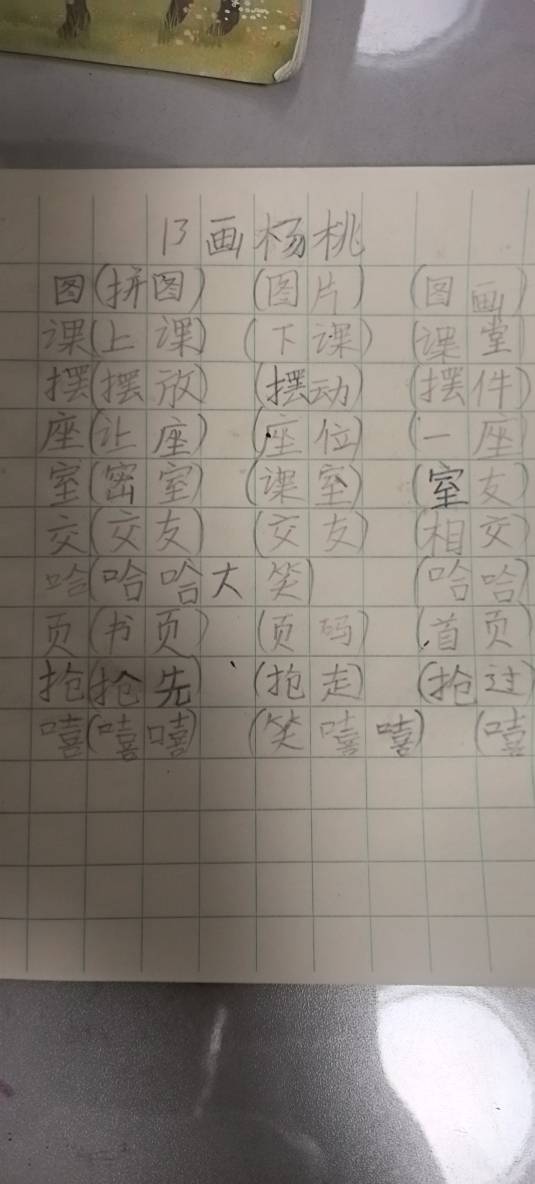 13画杨桃
图(拼图) (图片) (图画)
课(上课) (下课) (课堂
摆(摆放) (摆动) (摆件)
座(让座) (座位) (一座
室(密室) (课室) (室友)
交(交友) (交友) (相交)
哈(哈哈大笑) (哈哈)
页(书页) (页码) (首页)
抢(抢先) (抱走) (抢过)
嘻(嘻嘻) (笑嘻嘻) (嘻